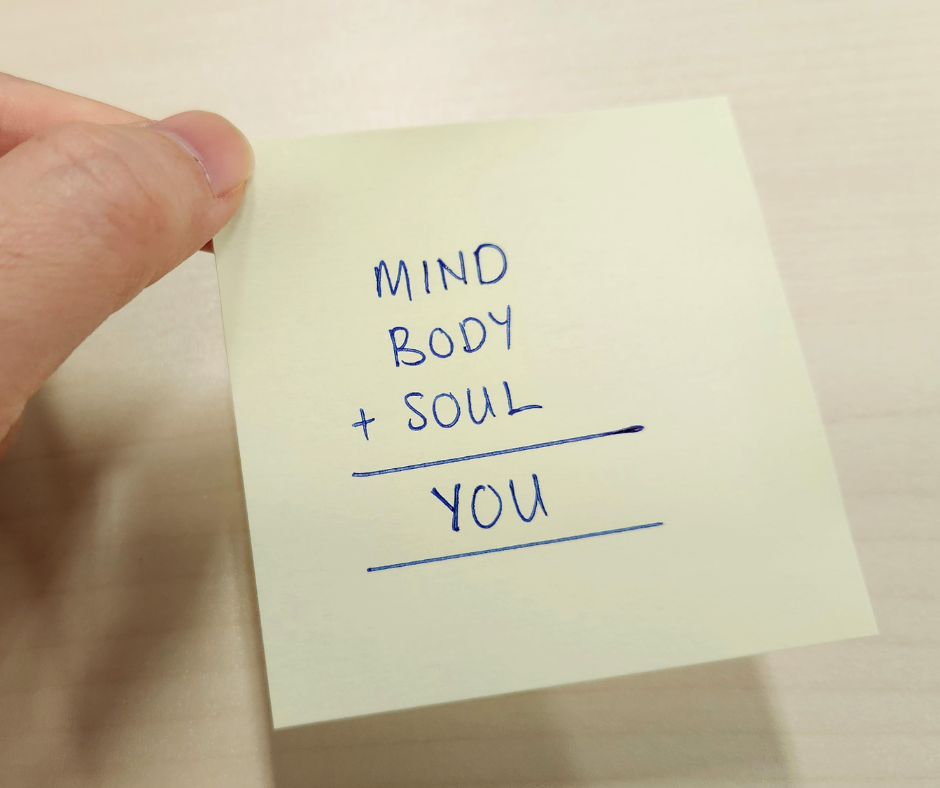 MIND
BODY
+ SOUL
YOU